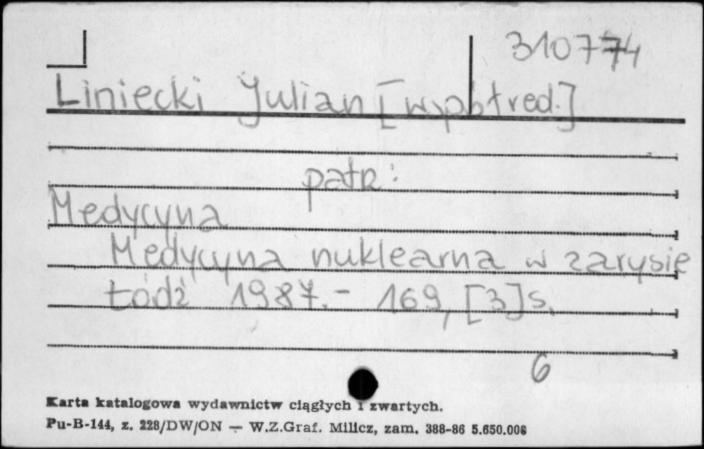 310774
Liniecki Julian [współred.]
patrz:
Medycyna
Medycyna nuklearna w zarysie
Łódź 1987.- 169, [3] s.
6
Karta katalogowa wydawnictw ciągłych i zwartych.
Pu-B-144, z. 228/DW/ON — W.Z.Graf. Milicz, zam. 388-86 5.650.006